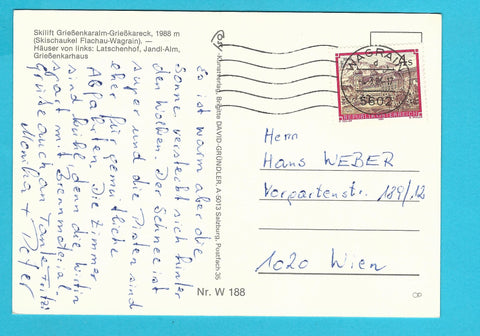 Skilift Grießenkaralm-Grießkareck, 1988 m
(Skischaukel Flachau-Wagrain). —
Häuser von links: Latschenhof, Jandl-Alm,
Grießenkarhaus
Es ist warm aber die
Sonne versteckt sich hinter
den Wolken. Der Schnee ist
super und die Pisten sind
eher für gemütliche
Abfahrten. Die Zimmer
sind kühl, denn die Wirtin
spart mit Brennmaterial.
Grüße auch an Tante Fritzi
Monika + Peter
Kunstverlag, Brigitte DAVID-GRÜNDLER, A-5013 Salzburg, Postfach 35
Nr. W 188
WAGRAIN
5602
Herrn
Hans WEBER
Vorgartenstr. 189/12
1020 Wien